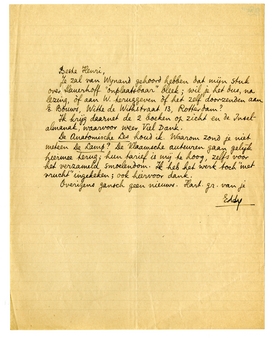 Beste Henri,
Je zal van Wijnand gehoord hebben dat mijn stuk
over Slauerhoff "onplaatsbaar" bleek; wil je het dus, na
lezing, of aan W. teruggeven of het zelf doorzenden aan
E. Bouws, Witte de Withstraat 73, Rotterdam?
Ik krijg daarnet de 2 boeken op zicht en de Insel-
almanak, waarvoor zeer Veel Dank.
De Anatomische Les houd ik. Waarom zond je niet
meteen De Lamp? De Vlaamsche auteurs gaan gelijk
hiermee terug; hun tarief is mij te hoog, zelfs voor
het verzameld smoelendom. Ik heb het werk toch "met
vrucht" ingekeken; ook hiervoor dank.
Overigens gansch geen nieuws. Hart. gr. van je
Eddy